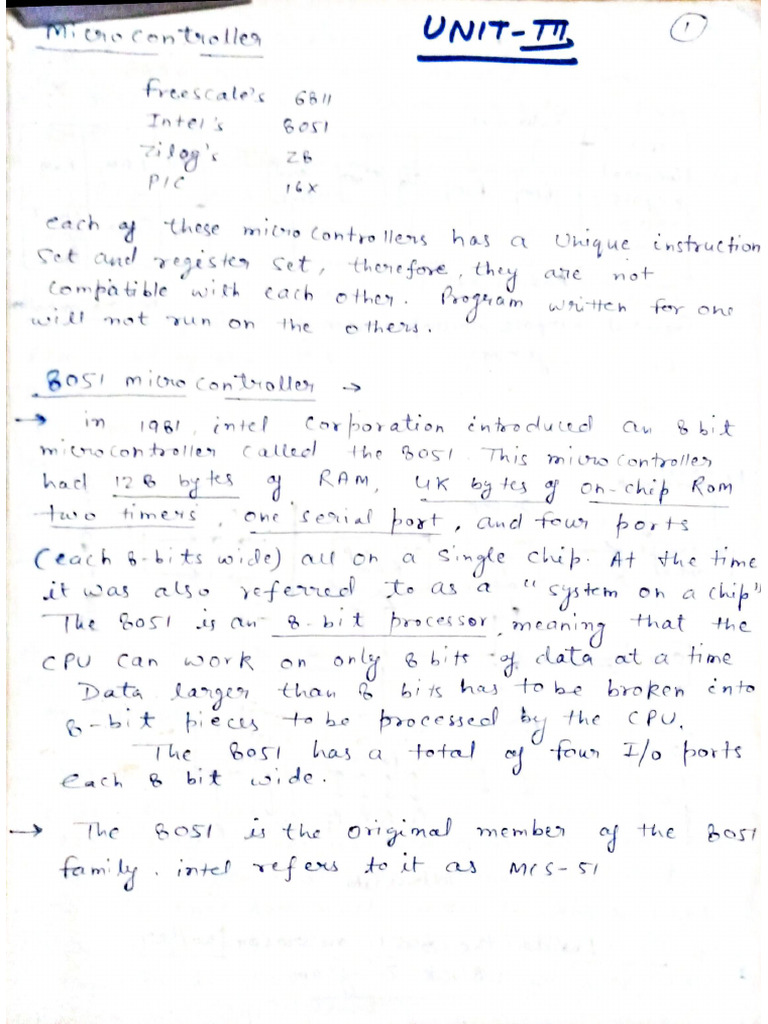 Microcontroller UNIT-III 1
freescale's 6811
Intel's 8051
Zilog's Z8
PIC 16x
each of these microcontrollers has a Unique instruction
Set and register set, therefore, they are not
compatible with each other. Program written for one
will not run on the others.
8051 microcontroller →
→ in 1981, intel corporation introduced an 8 bit
microcontroller called the 8051. This microcontroller
had 128 bytes of RAM, 4K bytes of on-chip Rom
two timers, one serial port, and four ports
(each 8-bits wide) all on a single chip. At the time
it was also referred to as a "system on a chip"
The 8051 is an 8-bit processor, meaning that the
CPU can work on only 8 bits of data at a time
Data larger than 8 bits has to be broken into
8-bit pieces to be processed by the CPU.
The 8051 has a total of four I/o ports
each 8 bit wide.
→ The 8051 is the original member of the 8051
family. intel refers to it as MCS-51